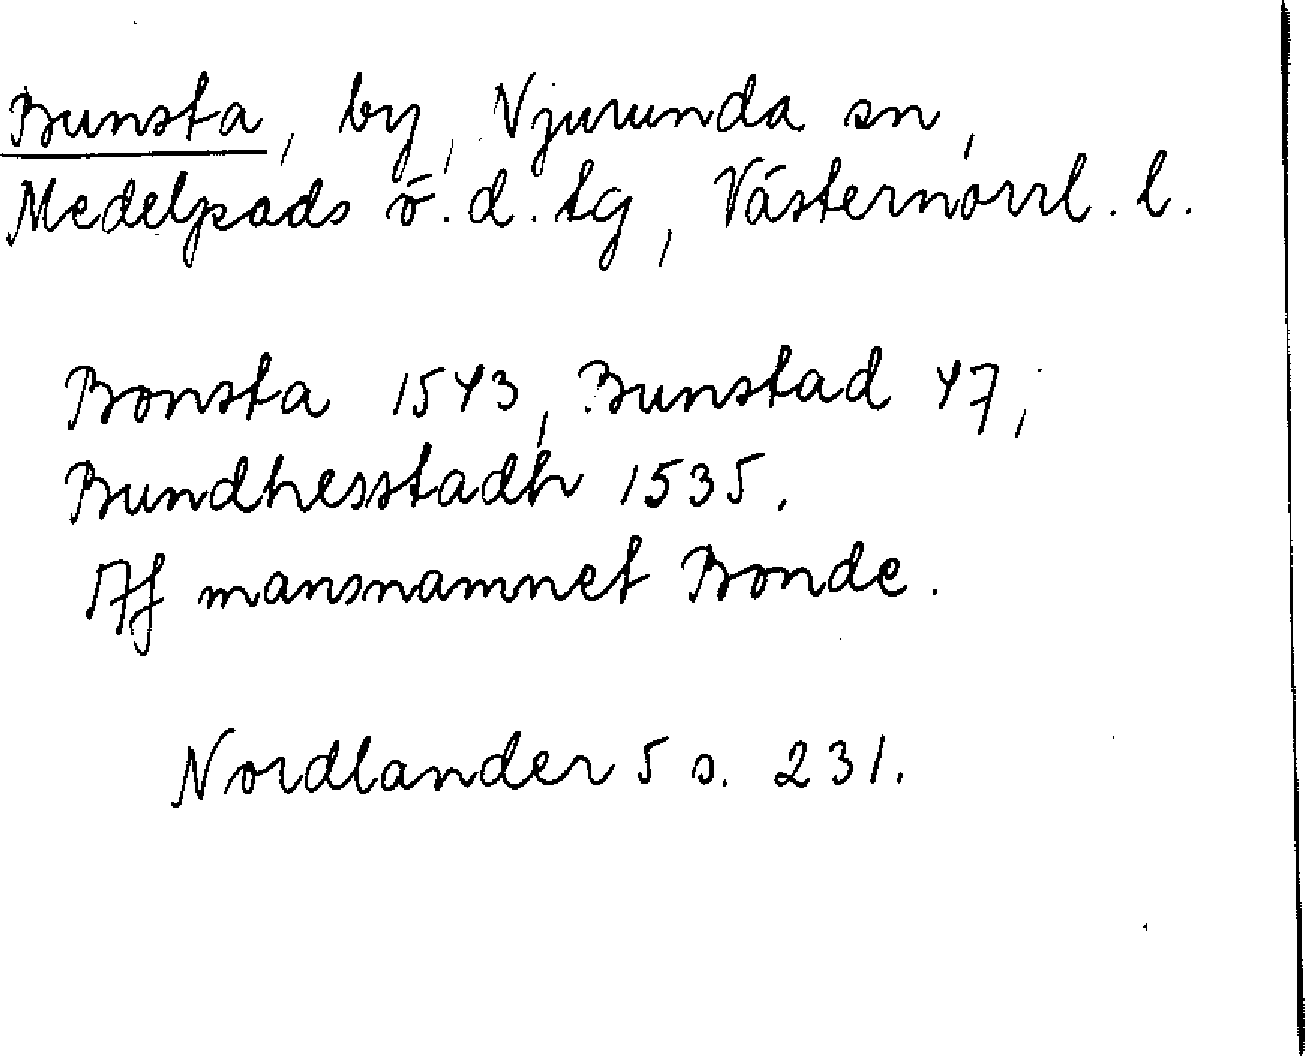 Bunsta, by, Njurunda sn,
Medelpads ö. d. tg, Västernorrl. l.
Bonsta 1543, Bunstad 47;
Bundhesstadh 1535.
Af mansnamnet Bonde.
Nordlander 5 s. 231.